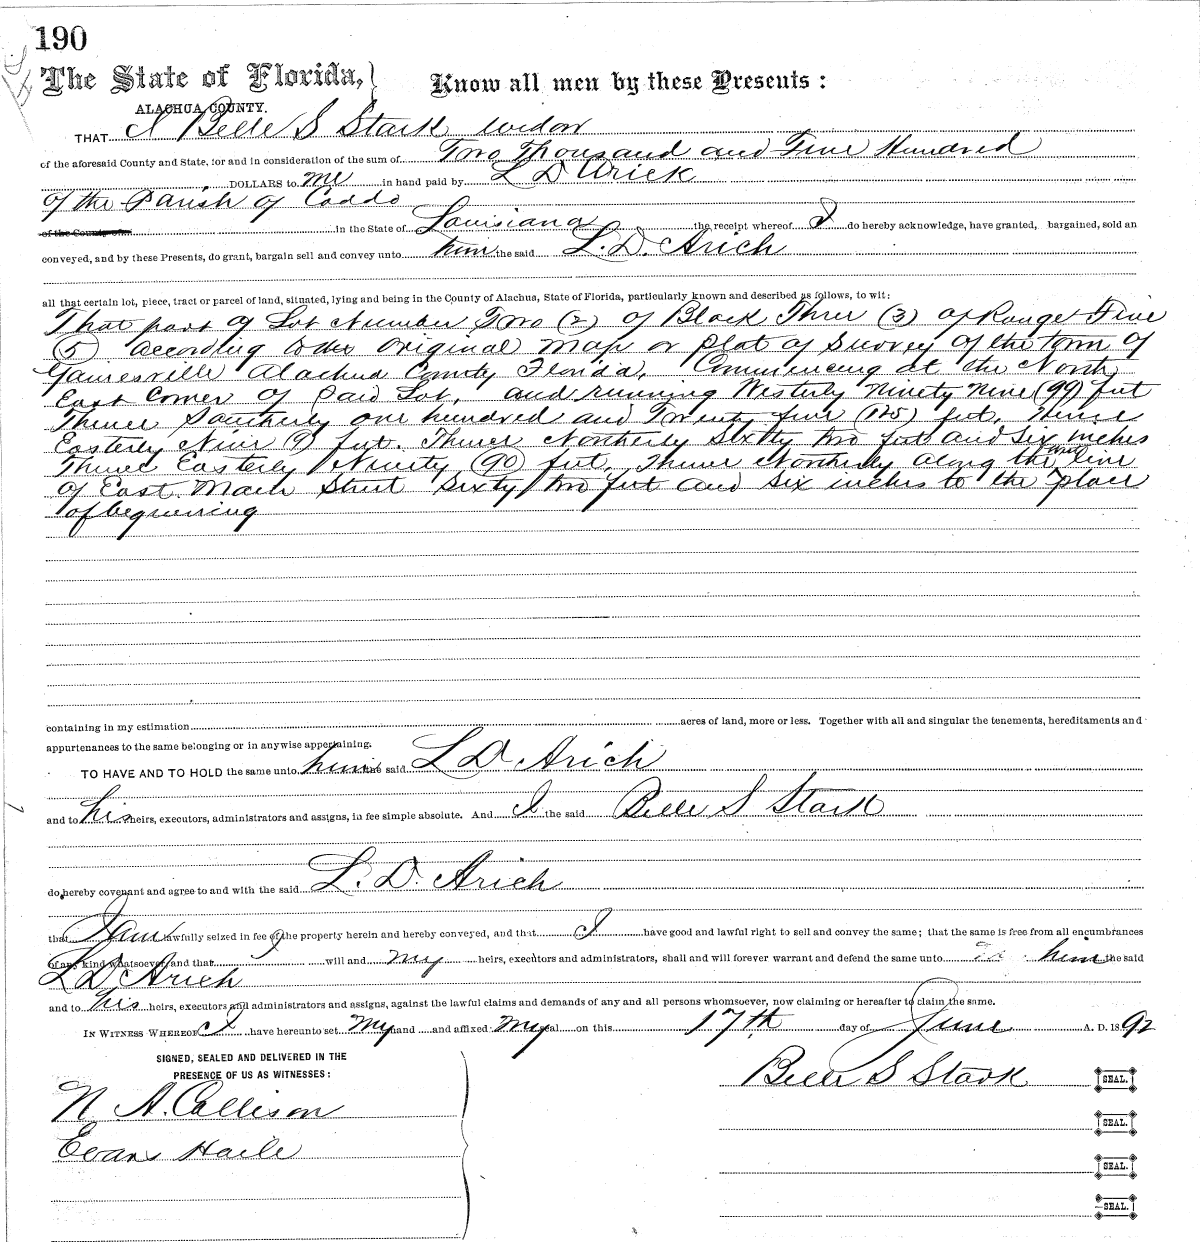 190
The State of Florida,} Know all men by these Presents :
ALACHUA COUNTY.
THAT I Belle S Stark widow
of the aforesaid County and State, for and in consideration of the sum of Two Thousand and Five Hundred
DOLLARS to me in hand paid by L D Arick
of the Parish of Caddo
of the County of in the State of Louisiana the receipt whereof I do hereby acknowledge, have granted, bargained, sold an
conveyed, and by these Presents, do grant, bargain sell and convey unto him the said L. D. Arich
all that certain lot, piece, tract or parcel of land, situated, lying and being in the County of Alachua, State of Florida, particularly known and described as follows, to wit:
That part of Lot Number Two (2) of Block Three (3) of Range Five
(5) according to the original map or plat of Survey of the town of
Gainesville Alachua County Florida, Commencing at the North
East Corner of Said Lot, and running Westerly Ninety Nine (99) feet
Thence Southerly one hundred and Twenty five (125) feet. Thence
Easterly Nine (9) feet. Thence Northerly Sixty two feet and six inches
Thence Easterly Ninety (90) feet, Thence Northerly along the line
of East Main Street Sixty two feet and six inches to the place
of beginning
containing in my estimation acres of land, more or less. Together with all and singular the tenements, hereditaments and
appurtenances to the same belonging or in anywise appertaining.
TO HAVE AND TO HOLD the same unto him the said L D Arich
and to his heirs, executors, administrators and assigns, in fee simple absolute. And I the said Belle S Stark
do hereby covenant and agree to and with the said L. D. Arich
that I am lawfully seized in fee of the property herein and hereby conveyed, and that I have good and lawful right to sell and convey the same; that the same is free from all encumbrances
of any kind whatsoever, and that I will and my heirs, executors and administrators, shall and will forever warrant and defend the same unto him the said
L D Arich
and to his heirs, executors and administrators and assigns, against the lawful claims and demands of any and all persons whomsoever, now claiming or hereafter to claim the same.
IN WITNESS WHEREOF I have hereunto set my hand and affixed my seal on this 17th day of June A. D. 1892
SIGNED, SEALED AND DELIVERED IN THE
PRESENCE OF US AS WITNESSES :
Belle S Stark SEAL.
N. A. Callison
SEAL.
Evans Haile
SEAL.
SEAL.